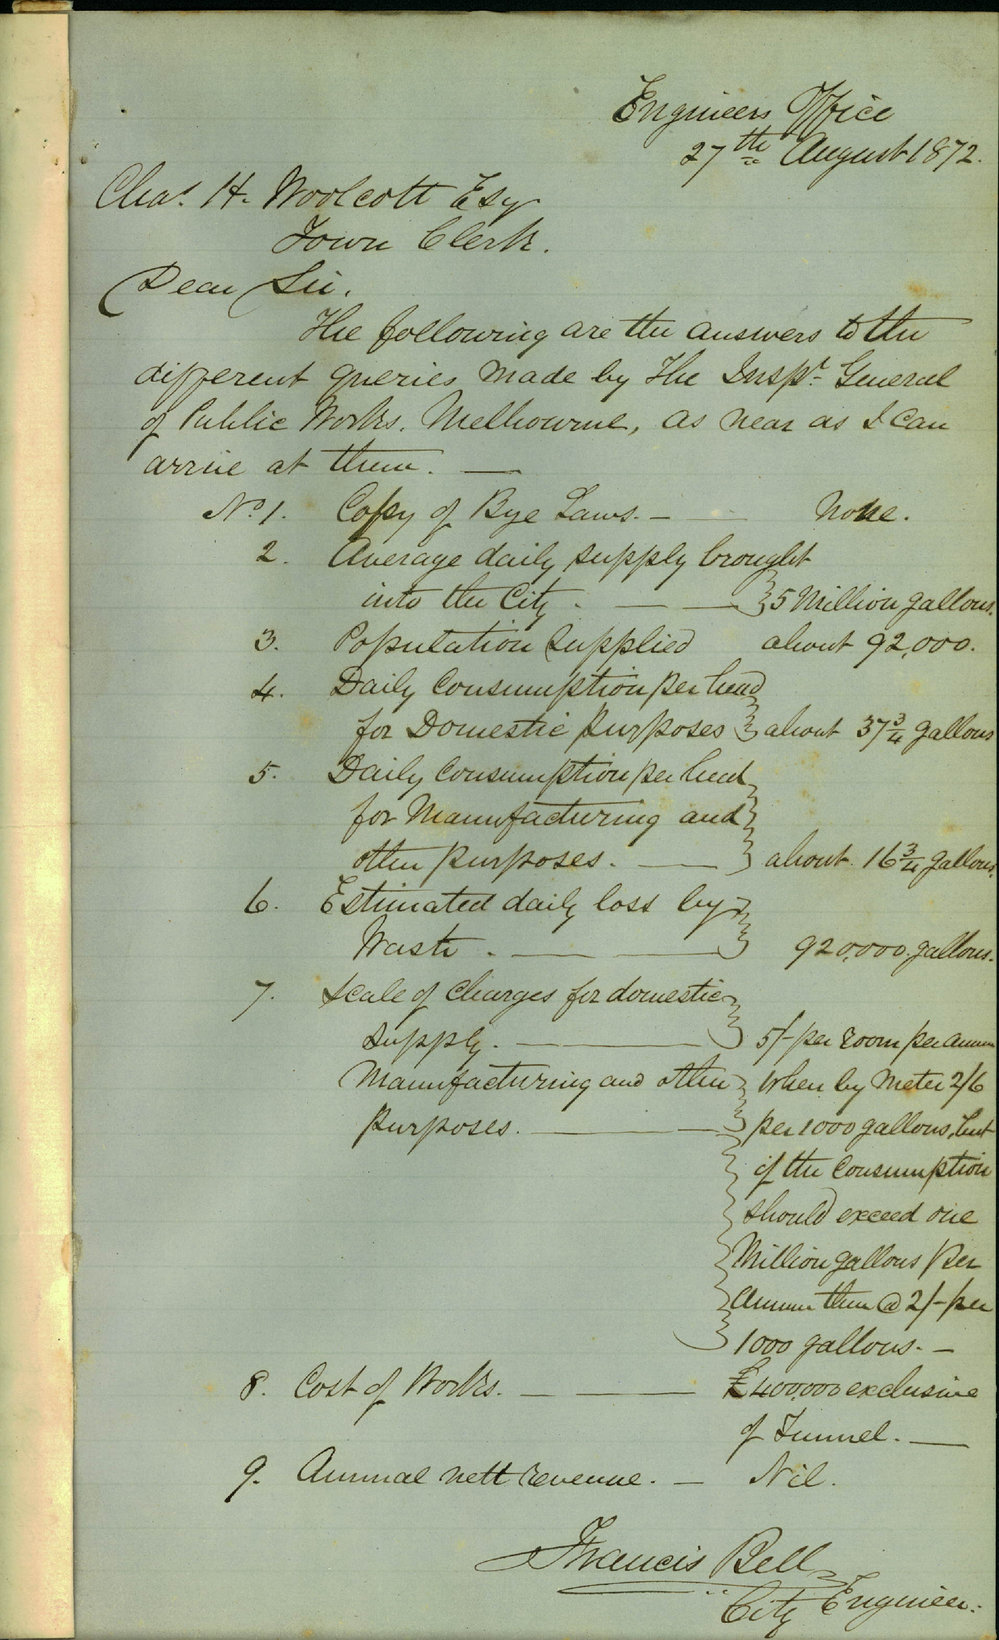 Engineers Office
27th August 1872.
Chas. H. Woolcott Esq
Town Clerk.
Dear Sir,
The following are the answers to the
different queries made by The Inspr. General
of Public Works. Melbourne, as near as I can
arrive at them. —
No. 1. Copy of Bye Laws. — — None.
2. Average daily supply brought
into the City. — — 5 Million gallons.
3. Population Supplied about 92,000.
4. Daily Consumption per head
for Domestic purposes about 37 3/4 gallons
5. Daily Consumption per head
for Manufacturing and
other purposes. — about 16 3/4 gallons.
6. Estimated daily loss by
Waste. — — 920,000 gallons.
7. Scale of Charges for domestic
supply. — 5/- per room per annum
Manufacturing and other When by Meter 2/6
purposes. — — per 1000 gallons, but
if the Consumption
should exceed one
Million gallons per
annum then @ 2/- per
1000 gallons. —
8. Cost of Works. — — £400,000 exclusive
of Tunnel. —
9. Annual nett revenue. — Nil.
Francis Bell
City Engineer.